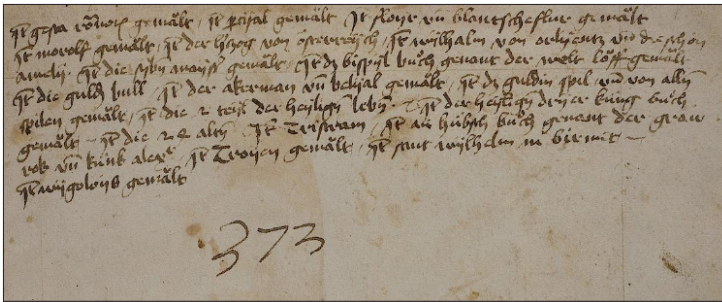 Jt̄ gesta romanoꝝ gemält, Jt̄ pcifal gemält Jt floyr vn̄ blantscheflur gemält
Jt morolf gemält, Jt̄ der h'tzog von österreych, Jt̄ wilhalm von orliens vn̄ die schön
amely, Jt̄ die sybn maist' gemält, Jt̄ dz bispyl bůch genant der welt löff gemält
Jt̄ die guldī bull, Jt̄ der akerman vn̄ belyal gemält, Jt̄ dz guldin spil vn̄ von allen
spilen gemält, Jt̄ die 2 teil der heylign lebn, Jt̄ der heylign dryer küng bůch
gemält Jt̄ die 24 altn Jt̄ Tristram, Jt̄ ain hübsch bůch genant der graw
rok vn̄ künk alexr, Jt̄ Troyen gemält, Jt̄ sant wylhelm in birmit
Jt̄ wygoloys gemält
373